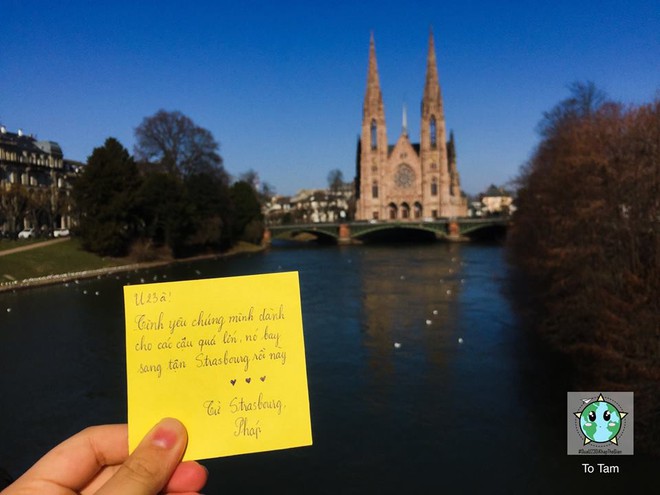 U23 à!
Tình yêu chúng mình dành
cho các cậu quá lớn, nó bay
sang tận Strasbourg rồi này
Từ Strasbourg,
Pháp
To Tam